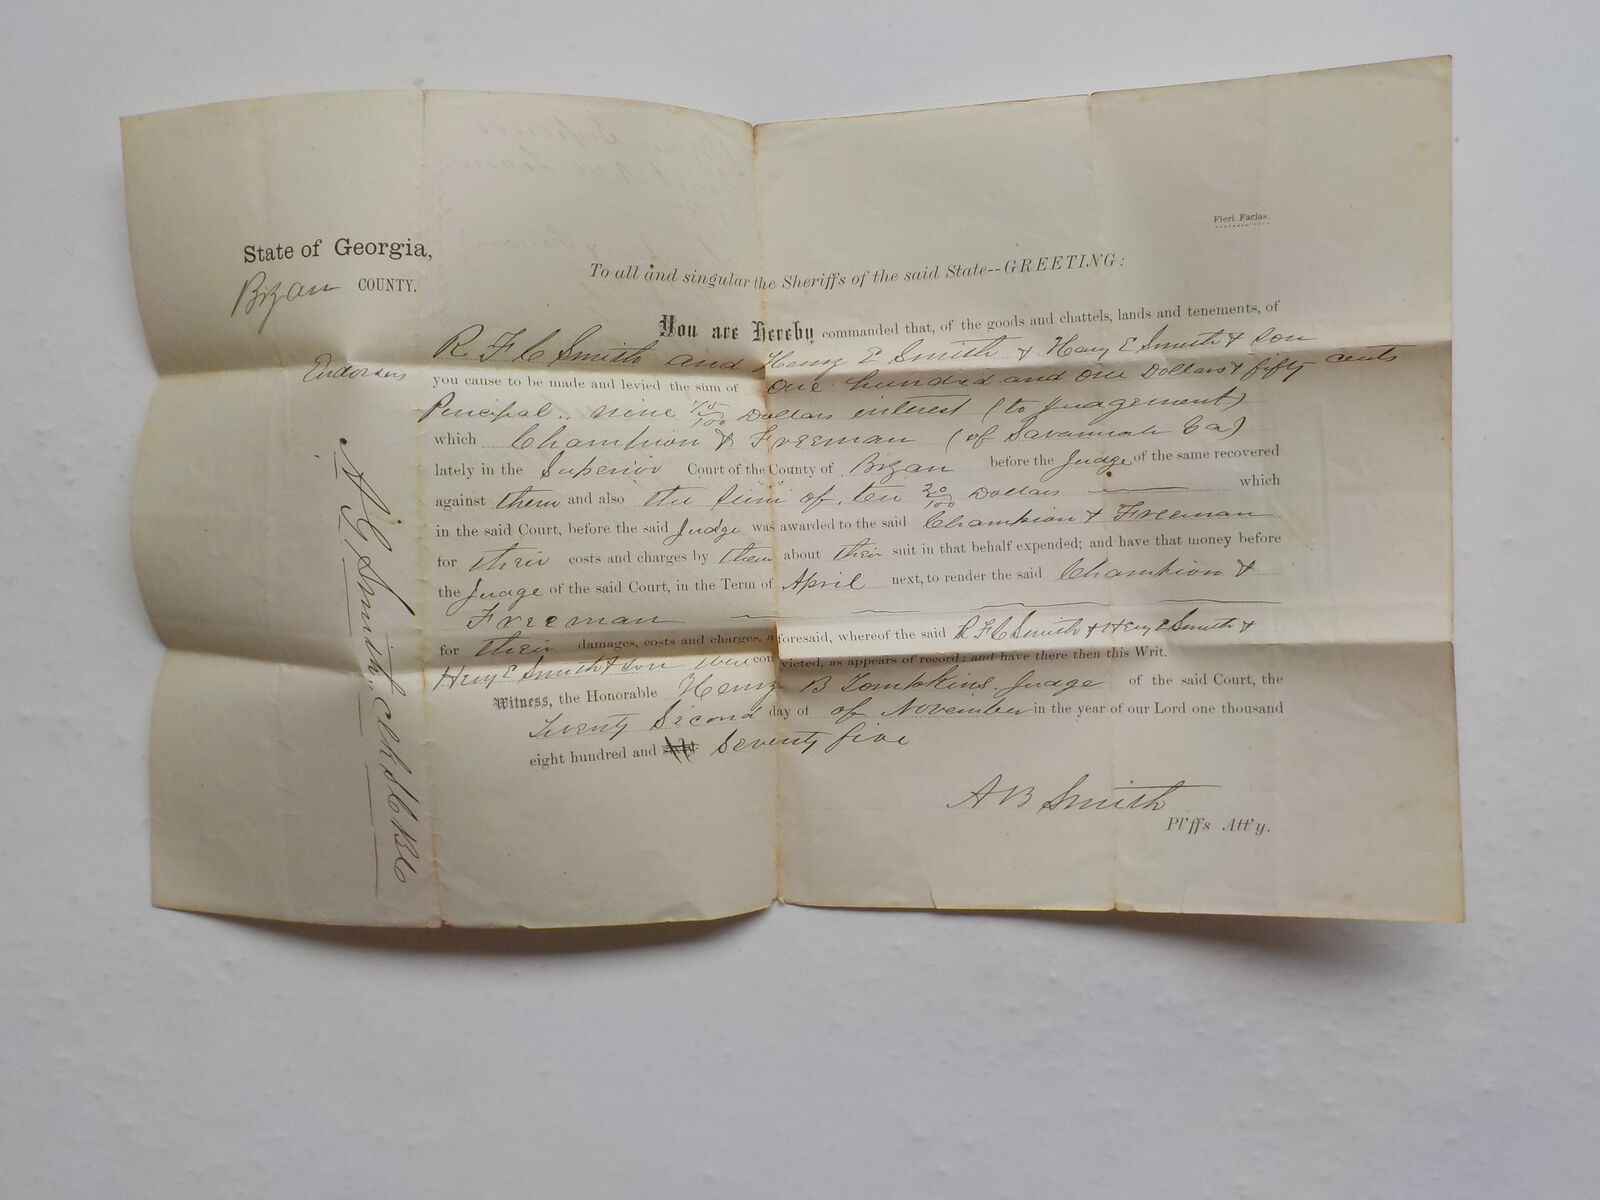 Fieri Facias.
State of Georgia,
Bryan COUNTY.
To all and singular the Sheriffs of the said State--GREETING:
You are Hereby commanded that, of the goods and chattels, lands and tenements, of
R. F. C Smith and Henry E Smith & Henry E Smith & Son
Endorsers
you cause to be made and levied the sum of One hundred and One Dollars & fifty cents
Principal .. nine 75/100 Dollars interest (to Judgement)
which Champion & Freeman (of Savannah Ga)
lately in the Superior Court of the County of Bryan before the Judge of the same recovered
against them and also the sum of ten 20/100 Dollars which
in the said Court, before the said Judge was awarded to the said Champion & Freeman
for their costs and charges by them about their suit in that behalf expended; and have that money before
the Judge of the said Court, in the Term of April next, to render the said Champion &
Freeman
for their damages, costs and charges, aforesaid, whereof the said R F C Smith & Henry E Smith &
Henry E Smith & Son were convicted, as appears of record; and have there then this Writ.
Witness, the Honorable Henry B Tompkins Judge of the said Court, the
Twenty Second day of of November in the year of our Lord one thousand
eight hundred and Seventy five
A B Smith
Pl'ffs Att'y.
A G Smith, Clk S C B Co